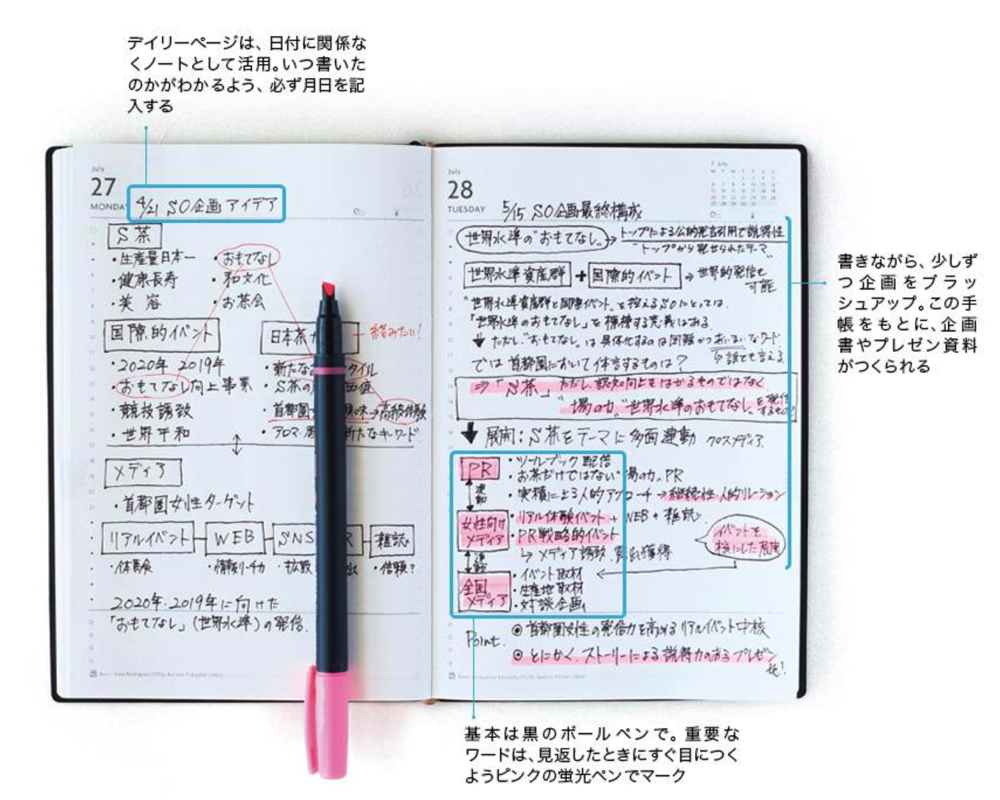 デイリーページは、日付に関係な
くノートとして活用。いつ書いた
のかがわかるよう、必ず月日を記
入する
July
27
MONDAY
4/21 SO企画アイデア
S茶
・生産量日本一 ・おもてなし
・健康長寿 ・和文化
・美容 ・お茶会
国際的イベント
日本茶
絡みたい!
・2020年 2019年
・おもてなし向上事業
・競技誘致
・世界平和
新たな
イル
・S茶の
価値
・首都圏
味→高級体験
・アロマ
新たなキーワード
メディア
・首都圏女性ターゲット
リアルイベント WEB SNS R 雑誌
・体験会 ・情報リーチ力 ・拡散 出 ・信頼?
2020年・2019年に向けた
「おもてなし」(世界水準)の発信
July
28
TUESDAY
7 July
M T W T F S S
5/15 SO企画最終構成
世界水準の"おもてなし" → トップによる公的発言引用で説得性
"トップから発せられたテーマ"
世界水準資産群 + 国際的イベント → 世界的発信も
可能
"世界水準資産群と国際イベント"を控えるSOにとっては、
「世界水準のおもてなし」を標榜する意義はある
ただし"おもてなし"は具体化するのは困難かつあいまいなワード
今誰でも言える
では首都圏において体言するものは?
⇒「S茶」ただし認知向上をはかるものではなく
"場の力""世界水準のおもてなし"を発信
するもの!
展開:S茶をテーマに多面連動 クロスメディア
PR
・ツールブック配信
・お茶だけではない"場の力"PR
・実績による人的アプローチ→継続性人的リレーション
連動
女性向け
メディア
・リアル体験イベント + WEB + 雑誌
・PR戦略的イベント
↳ メディア誘致、露出獲得
連動
イベントを
核にした展開
全国
メディア
・イベント取材
・生産地取材
・対談企画
Point.
◎首都圏女性の発信力を高めるリアルイベント中核
◎とにかく、ストーリーによる説得力のあるプレゼン
を!
書きながら、少しず
つ企画をブラッ
シュアップ。この手
帳をもとに、企画
書やプレゼン資料
がつくられる
基本は黒のボールペンで。重要な
ワードは、見返したときにすぐ目につく
ようピンクの蛍光ペンでマーク